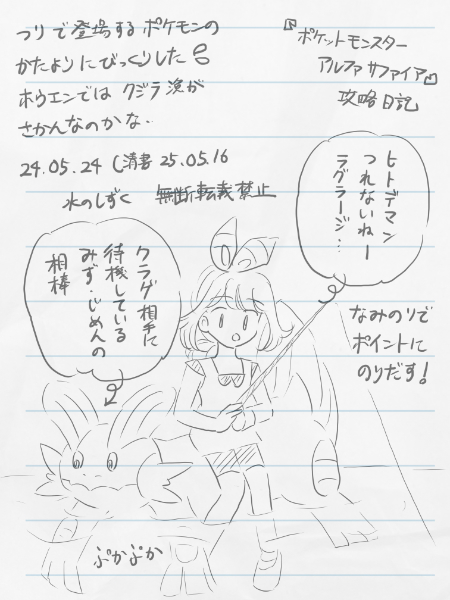 『ポケットモンスター
アルファサファイア』
攻略日記
つりで登場するポケモンの
かたよりにびっくりした
ホウエンではクジラ漁が
さかんなのかな.
24.05.24 (清書 25.05.16
水のしずく 無断転載禁止
ヒトデマン
つれないねー
ラグラージ…
クラゲ相手に
待機している
みず・じめんの
相棒
なみのりで
ポイントに
のりだす!
ぷかぷか